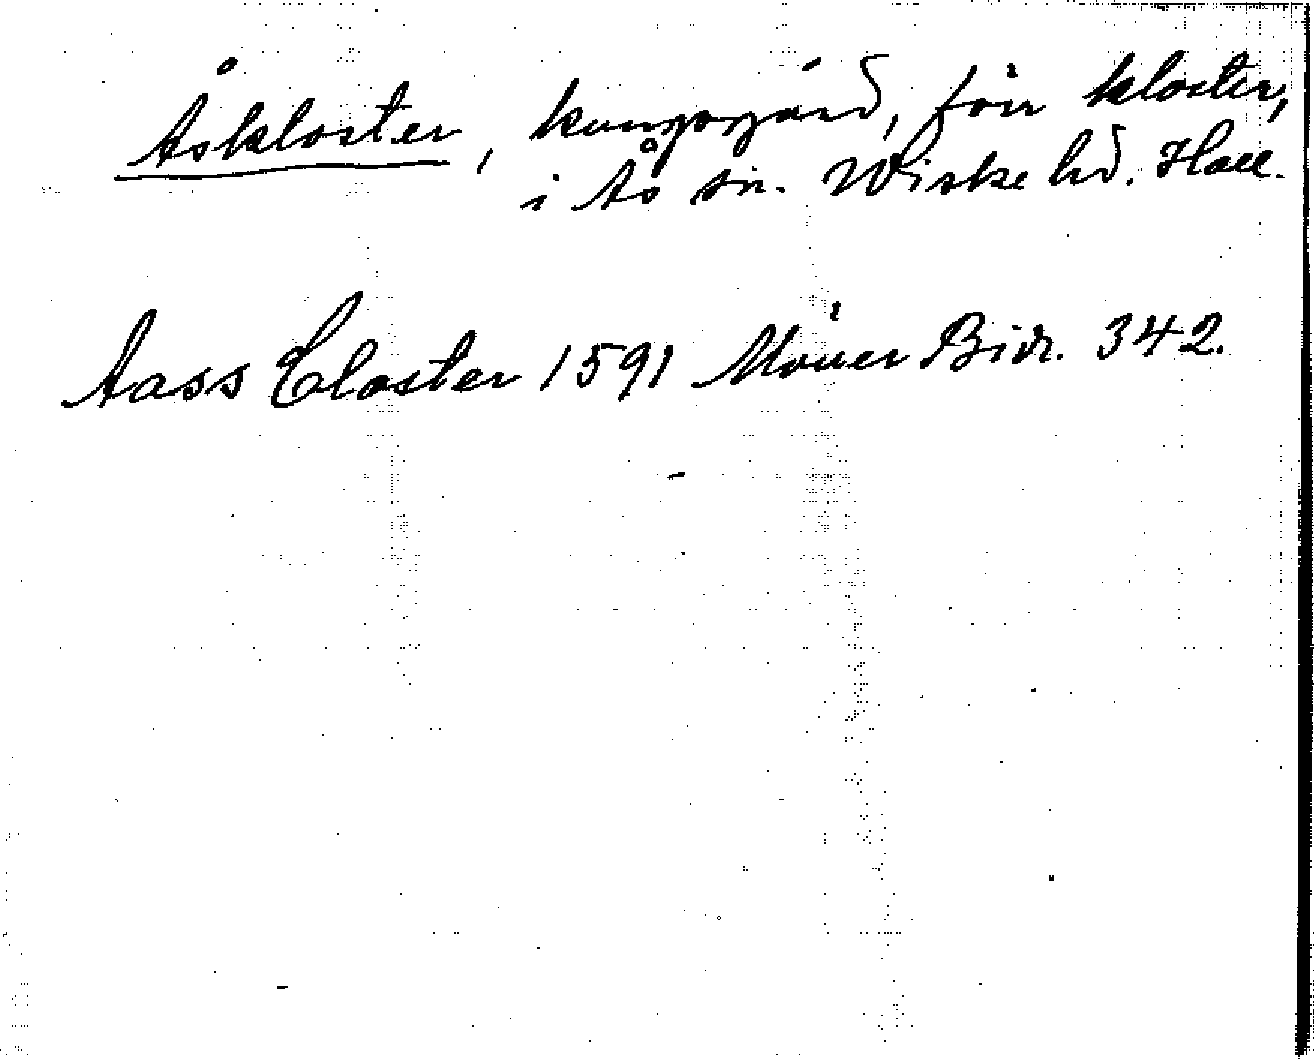 Åskloster, kungsgård, förr kloster,
i Ås sn. Wiske hd. Hall.
Aass Closter 1591 Mörner Bidr. 342.